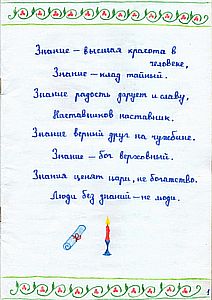 Знание – высшая красота в
человеке,
Знание – клад тайный.
Знание радость дарует и славу,
Наставников наставник.
Знание верный друг на чужбине.
Знание – бог верховный.
Знания ценят цари, не богатство.
Люди без знаний – не люди.
1